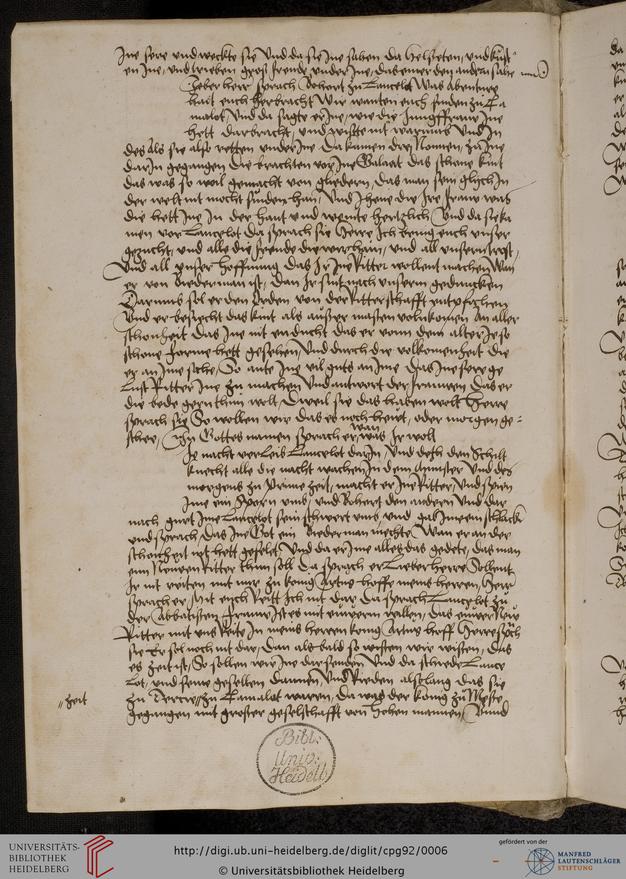 Ine sere und weckte sie Und da sie Ine sahen da helseten, und kust
en Ine, und trieben groß freude under Ine, das einer den andern sahe
Lieber herr sprach Bohort zu Lancelot Was Abenture
hait euch herbracht Wir wanten euch finden zu Ca
malot Und da sagte er Ine, wie die Jungffrauw Ine
hett darbracht, und wiste nit warumb Und In
des Als sie also retten under Ine Da kamen dry Nonnen, zu Ine
darIn gegangen Die brachten vor Ine Galaat das schone kint
das was so woil gemacht von gliedern, das man sein glych In
der welt nit mocht finden han, Und Jhene die Ire frauw was
die hett Ine In der hant und weinte hertzlich, Und da sie ka
men vor Lancelot Da sprach sie Herre Ich bring euch unser
gezucht, und alle die freude die wir han, und all unsern trost,
Und all unser hoffnung Das Ir Ine Ritter wollent machen Wan
er von biederman ist, Dan Ir sint nach unserm geduncken
Darumb sol er den Orden von der Ritterschafft entpfahen
Und er besicht das kint als außer massen volnkomen an aller
schonheit Das Ine nit enducht das er vonn dem alter Ie so
schone forme hett gesehen, Und durch die volkomenheit die
er an Ime sehe, So ante Ine vil guts an Ime Das Ine sere ge
lust Ritter Ine zu machen Und antwort der frauwen Das er
die bede gern thun wolt, Dweil sie das haben wolt Herre
sprach sie So wollen wir das es noch heint, oder morgen ge-
schee, In Gottes namen sprach er, was Ir woll
Die nacht verleib Lancelot darIn, Und deth den Schilt
knecht alle die nacht wachen In dem Munster Und des
morgens zu Prime zeit, macht er Ine Ritter, Und spien
Ime ein Sporn umb, und Bohort den andern Und dar
nach gurt Ime Lancelot sein schwert umb, und gab Ime ein schlack
und sprach, Das Ine Got ein biederman mechte, Wan er an der
schonheit nit hett gefelet, Und da er Ime alles das gedete, das man
eim Nuwen Ritter thun soll, Da sprach er Lieber herre Sollent
Ir nit reiten mit mir zu konig Artus hoffe meins herren, Herr
sprach er Mit euch Ritt Ich nit dar, Da sprach Lancelot zu
der Abbatissen Frauw Ist es mit euwerm willen, Das euwer Nuw
Ritter mit uns Ritt In meins herren konig Artus hoff Herre sprach
sie Er sol noch nit dar, Dan als bald so wisten wir wissen, Das
es zeit ist, So sollen wir Ine dar senden, Und da schiede Lance
Lot, und seine gesellen dannen, Und Rieden als lang das sie
zu Tercie // zu Camalot waren, Da was der konig zu Messe
// zeit
gegangen mit grosser geselschafft von hohen mannen, Unnd
Bibl:
Univ:
Heidelb.
UNIVERSITÄTS-
BIBLIOTHEK
HEIDELBERG
http://digi.ub.uni-heidelberg.de/diglit/cpg92/0006
© Universitätsbibliothek Heidelberg
gefördert von der
MANFRED
LAUTENSCHLÄGER
STIFTUNG